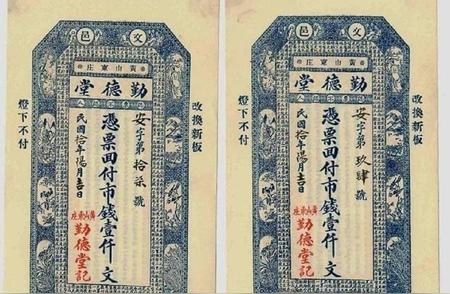 文邑
黃山東庄
勤德堂
改換新板
安字第拾柒號
憑票回付市錢壹仟文
民國拾年陽月吉日
黃山東庄
勤德堂記
燈下不付
文邑
黃山東庄
勤德堂
改換新板
安字第玖肆號
憑票回付市錢壹仟文
民國拾年陽月吉日
黃山東庄
勤德堂記
燈下不付